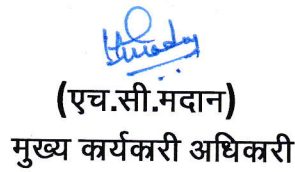 (एच.सी.मदान)
मुख्य कार्यकारी अधिकारी